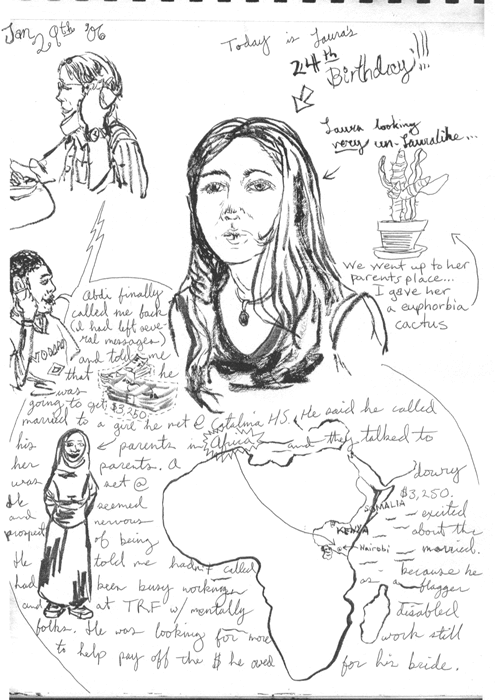 Jan 29th '06
Today is Laura's
24th
Birthday!!!
Laura looking
very un-Lauralike...
We went up to her
parents place...
I gave her
a euphorbia
cactus
Abdi finally
called me back
(I had left seve-
ral messages)
and told me
that he
was
going to get $3250.
married to a girl he met @ Catalina HS. He said he called
his parents in Africa and they talked to
her parents. A dowry
was set @ $3,250.
He seemed excited
and nervous about the
prospect of being married.
He told me hadn't called because he
had been busy working as a flagger
and at TRF w/ mentally disabled
folks. He was looking for more work still
to help pay off the $ he owed for his bride.
SOMALIA
KENYA
Nairobi